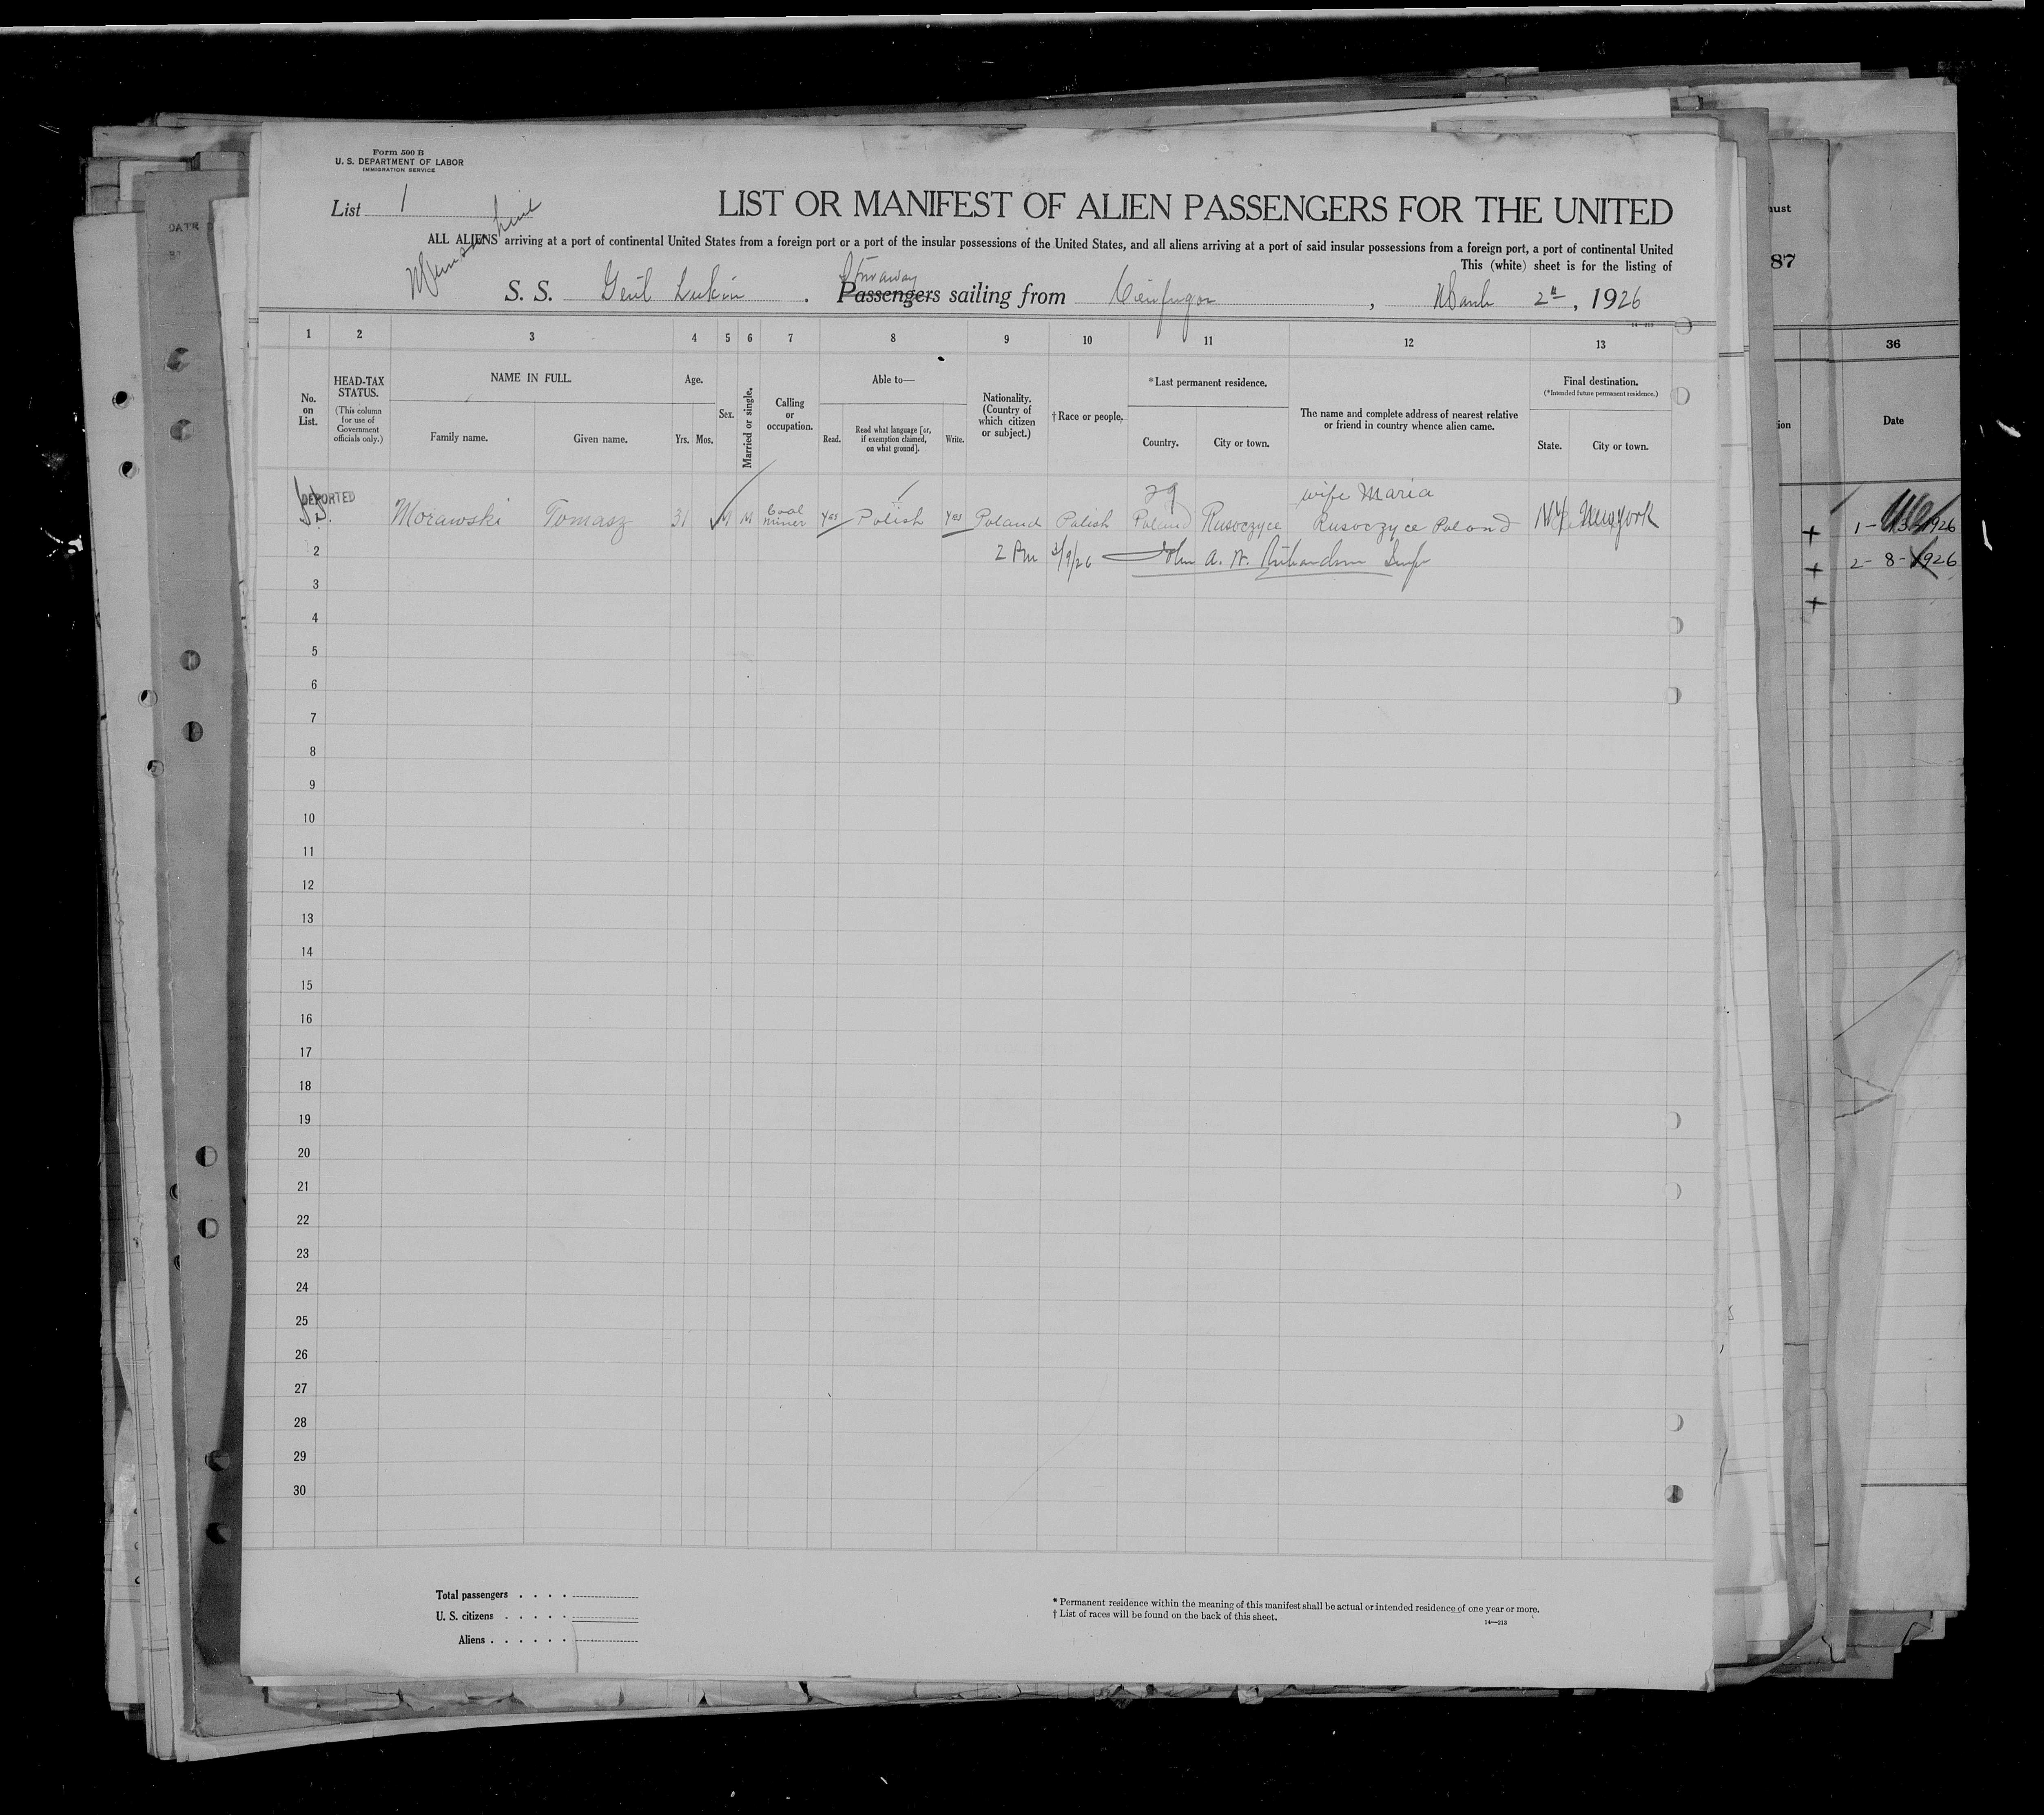 Form 500 B
U. S. DEPARTMENT OF LABOR
IMMIGRATION SERVICE
List 1
LIST OR MANIFEST OF ALIEN PASSENGERS FOR THE UNITED
ALL ALIENS arriving at a port of continental United States from a foreign port or a port of the insular possessions of the United States, and all aliens arriving at a port of said insular possessions from a foreign port, a port of continental United
This (white) sheet is for the listing of
Munson Line
Stowaway
S. S. Passengers sailing from , March 2nd, 1926
14—213
1 2 3 4 5 6 7 8 9 10 11 12 13
No. on List.
HEAD-TAX STATUS.
(This column for use of Government officials only.)
NAME IN FULL.
Family name. Given name.
Age.
Yrs. Mos.
Sex.
Married or single.
Calling or occupation.
Able to—
Read. Read what language [or, if exemption claimed, on what ground]. Write.
Nationality. (Country of which citizen or subject.)
†Race or people.
*Last permanent residence.
Country. City or town.
The name and complete address of nearest relative or friend in country whence alien came.
Final destination.
(*Intended future permanent residence.)
State. City or town.
DEPORTED
29 wife Maria
Morawski Tomasz 31 M M Coal miner yes Polish yes Poland Polish Poland Rusoczyce Rusoczyce Poland NY New York
2 2 PM 3/9/26 John A. W. Richardson Insp
3
4
5
6
7
8
9
10
11
12
13
14
15
16
17
18
19
20
21
22
23
24
25
26
27
28
29
30
Total passengers . . . .
U. S. citizens . . . . .
Aliens . . . . . .
* Permanent residence within the meaning of this manifest shall be actual or intended residence of one year or more.
† List of races will be found on the back of this sheet.
14—213
ust
87
36
ion
Date
+ 1- 13-1926
+ 2- 8-1926
+
DATE